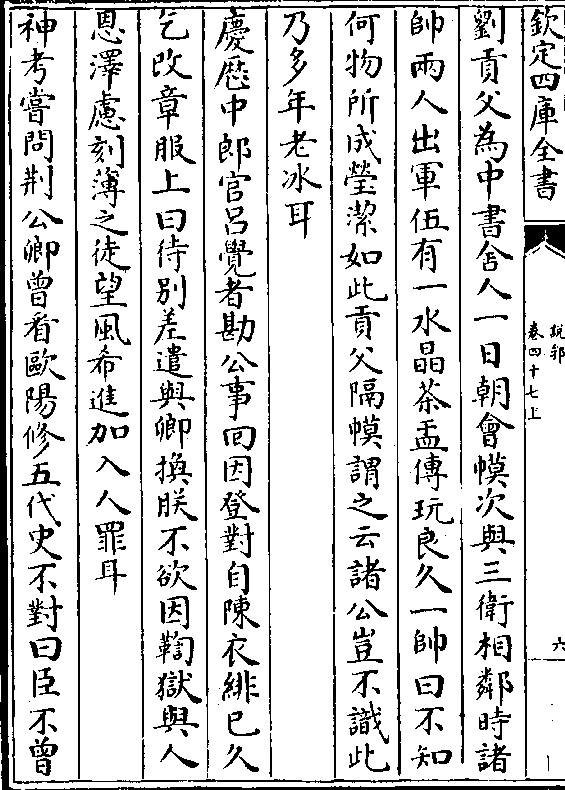 欽定四庫全書
說郛
卷四十七上
六
劉貢父為中書舍人一日朝會幙次與三衛相鄰時諸
帥兩人出軍伍有一水晶茶盂傳玩良久一帥曰不知
何物所成瑩潔如此貢父隔幙謂之云諸公豈不識此
乃多年老冰耳
慶厯中郎官呂覺者勘公事回因登對自陳衣緋已久
乞改章服上曰待别差遣與卿換朕不欲因鞫獄與人
恩澤慮刻薄之徒望風希進加入人罪耳
神考嘗問荆公卿曾看歐陽修五代史不對曰臣不曾